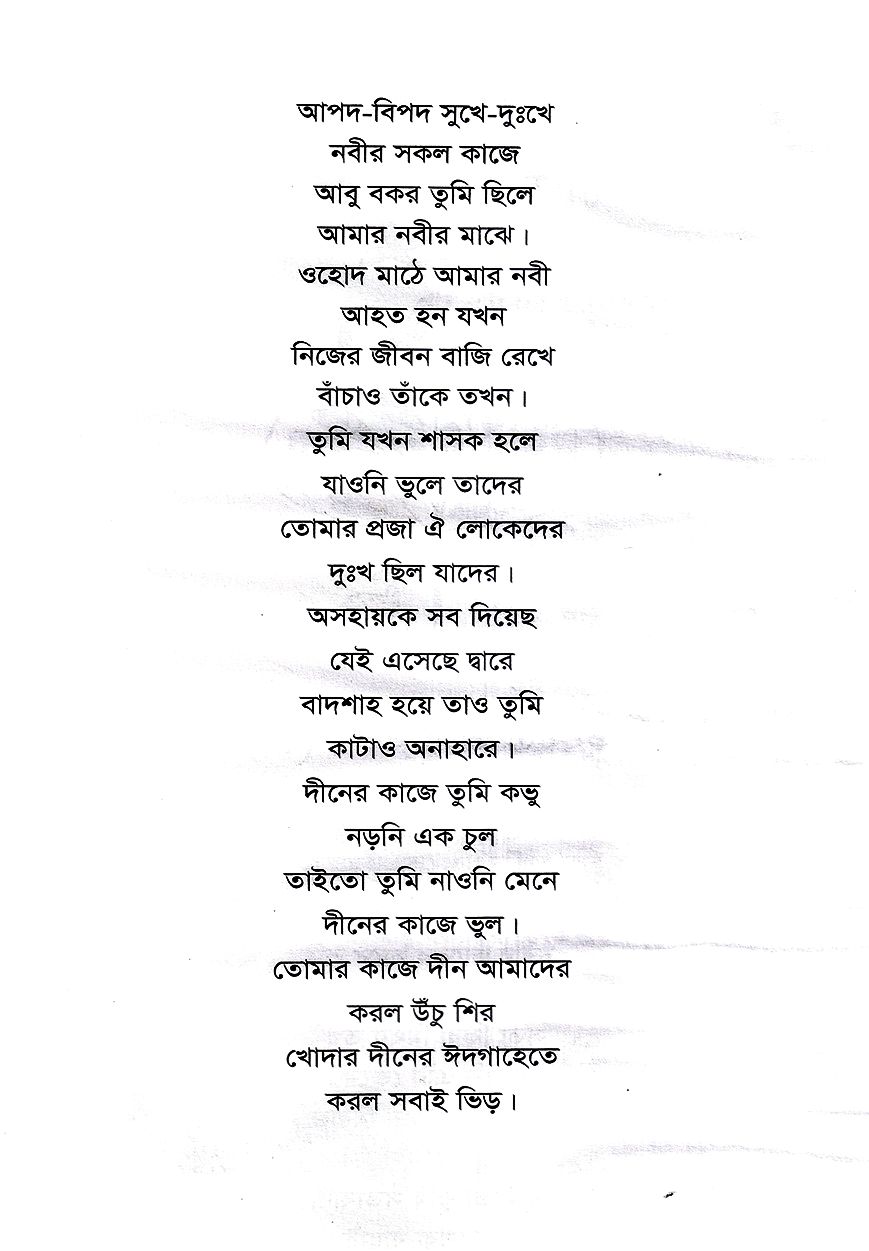 আপদ-বিপদ সুখে-দুঃখে
নবীর সকল কাজে
আবু বকর তুমি ছিলে
আমার নবীর মাঝে।
ওহোদ মাঠে আমার নবী
আহত হন যখন
নিজের জীবন বাজি রেখে
বাঁচাও তাঁকে তখন।
তুমি যখন শাসক হলে
যাওনি ভুলে তাদের
তোমার প্রজা ঐ লোকেদের
দুঃখ ছিল যাদের।
অসহায়কে সব দিয়েছ
যেই এসেছে দ্বারে
বাদশাহ হয়ে তাও তুমি
কাটাও অনাহারে।
দীনের কাজে তুমি কভু
নড়নি এক চুল
তাইতো তুমি নাওনি মেনে
দীনের কাজে ভুল।
তোমার কাজে দীন আমাদের
করল উঁচু শির
খোদার দীনের ঈদগাহেতে
করল সবাই ভিড়।